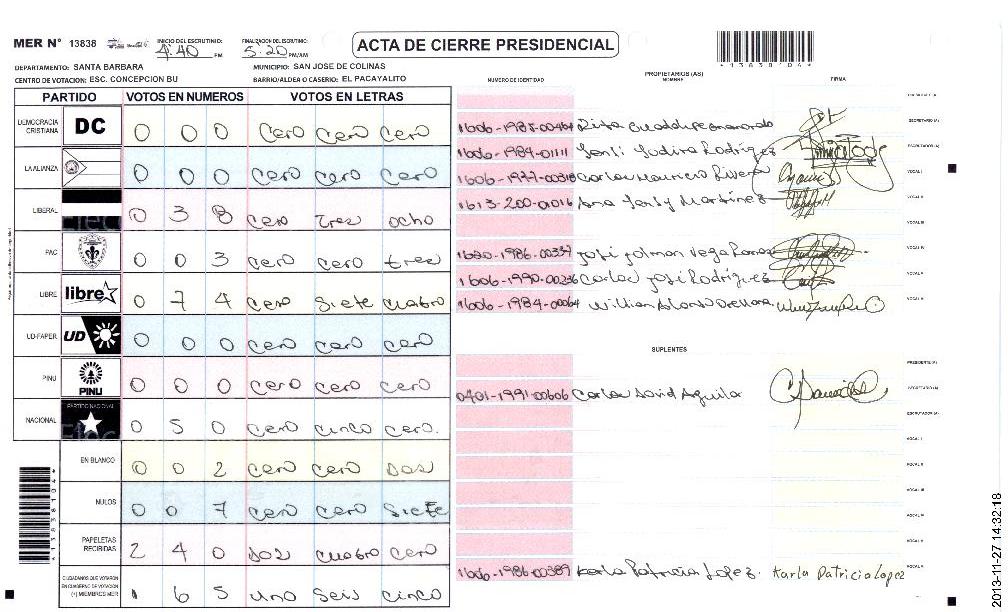 MER N° 13838 INICIO DEL ESCRUTINIO: 4:40 PM FINALIZACION DEL ESCRUTINIO: 5:20 PM/AM
ACTA DE CIERRE PRESIDENCIAL
*13838104*
DEPARTAMENTO: SANTA BARBARA MUNICIPIO: SAN JOSE DE COLINAS
CENTRO DE VOTACION: ESC. CONCEPCION BU BARRIO/ALDEA O CASERIO: EL PACAYALITO
PARTIDO VOTOS EN NUMEROS VOTOS EN LETRAS
DEMOCRACIA CRISTIANA DC 0 0 0 Cero Cero Cero
LA ALIANZA 0 0 0 Cero Cero Cero
LIBERAL 0 3 8 Cero tres ocho
PAC 0 0 3 Cero Cero tres
LIBRE libre 0 7 4 Cero Siete cuatro
UD-FAPER UD 0 0 0 Cero Cero Cero
PINU PINU 0 0 0 Cero Cero Cero
NACIONAL PARTIDO NACIONAL 0 5 0 Cero cinco cero.
EN BLANCO 0 0 2 Cero Cero Dos
NULOS 0 0 7 Cero Cero Siete
PAPELETAS RECIBIDAS 2 4 0 Dos cuatro cero
CIUDADANOS QUE VOTARON EN CUADERNO DE VOTACION (+) MIEMBROS MER 1 6 5 uno seis cinco
*13838104*
PROPIETARIOS (AS)
NUMERO DE IDENTIDAD NOMBRE FIRMA
SECRETARIO (A)
1606-1984-01111 Rodriguez ESCRUTADOR (A)
Carlos Mauricio Rivera VOCAL I
Ana Martinez VOCAL II
VOCAL III
1620-1986-00337 VOCAL IV
1606-1990-00236 Carlos José Rodríguez VOCAL V
1606-1984-00064 Willian VOCAL VI
SUPLENTES
PRESIDENTE (A)
0401-1991-00606 Carlos David Aguila SECRETARIO (A)
ESCRUTADOR (A)
VOCAL I
VOCAL II
VOCAL III
VOCAL IV
VOCAL V
1606-1986-00389 Karla Patricia Lopez. Karla Patricia Lopez
2013-11-27 14:32:18